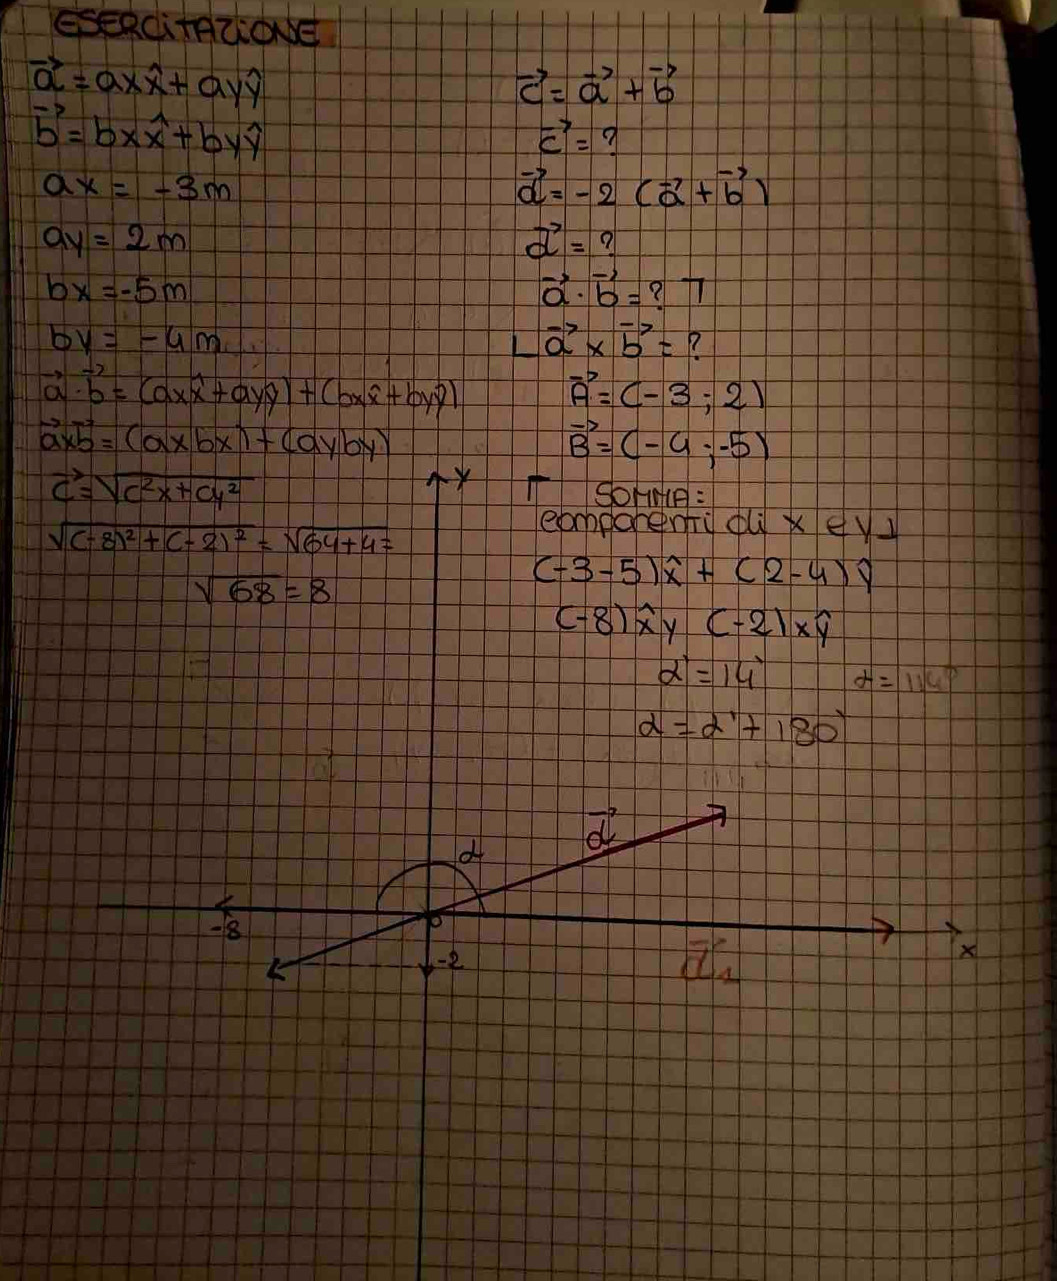 ESERCITAZIONE
a⃗ = axx̂ + ayŷ
b⃗ = bxx̂ + byŷ
ax = -3m
ay = 2m
bx = -5m
by = -4m
a⃗ · b⃗ = (axx̂ + ayŷ) + (bxx̂ + byŷ)
a⃗xb⃗ = (axbx) + (ayby)
c⃗ = √c²x + cy²
√(-8)² + (-2)² = √64+4 =
√68 = 8
c⃗ = a⃗ + b⃗
c⃗ = ?
d⃗ = -2 (a⃗ + b⃗)
d⃗ = ?
a⃗ · b⃗ = ?
a⃗ x b⃗ = ?
A⃗ = (-3 ; 2)
B⃗ = (-4 ; -5)
SOMMA:
componenti di x e y
(-3-5)x̂ + (2-4)ŷ
(-8)x̂y (-2)xŷ
α' = 14°
α = 114°
α = α' + 180°
y
d⃗
α
-8
0
-2
x